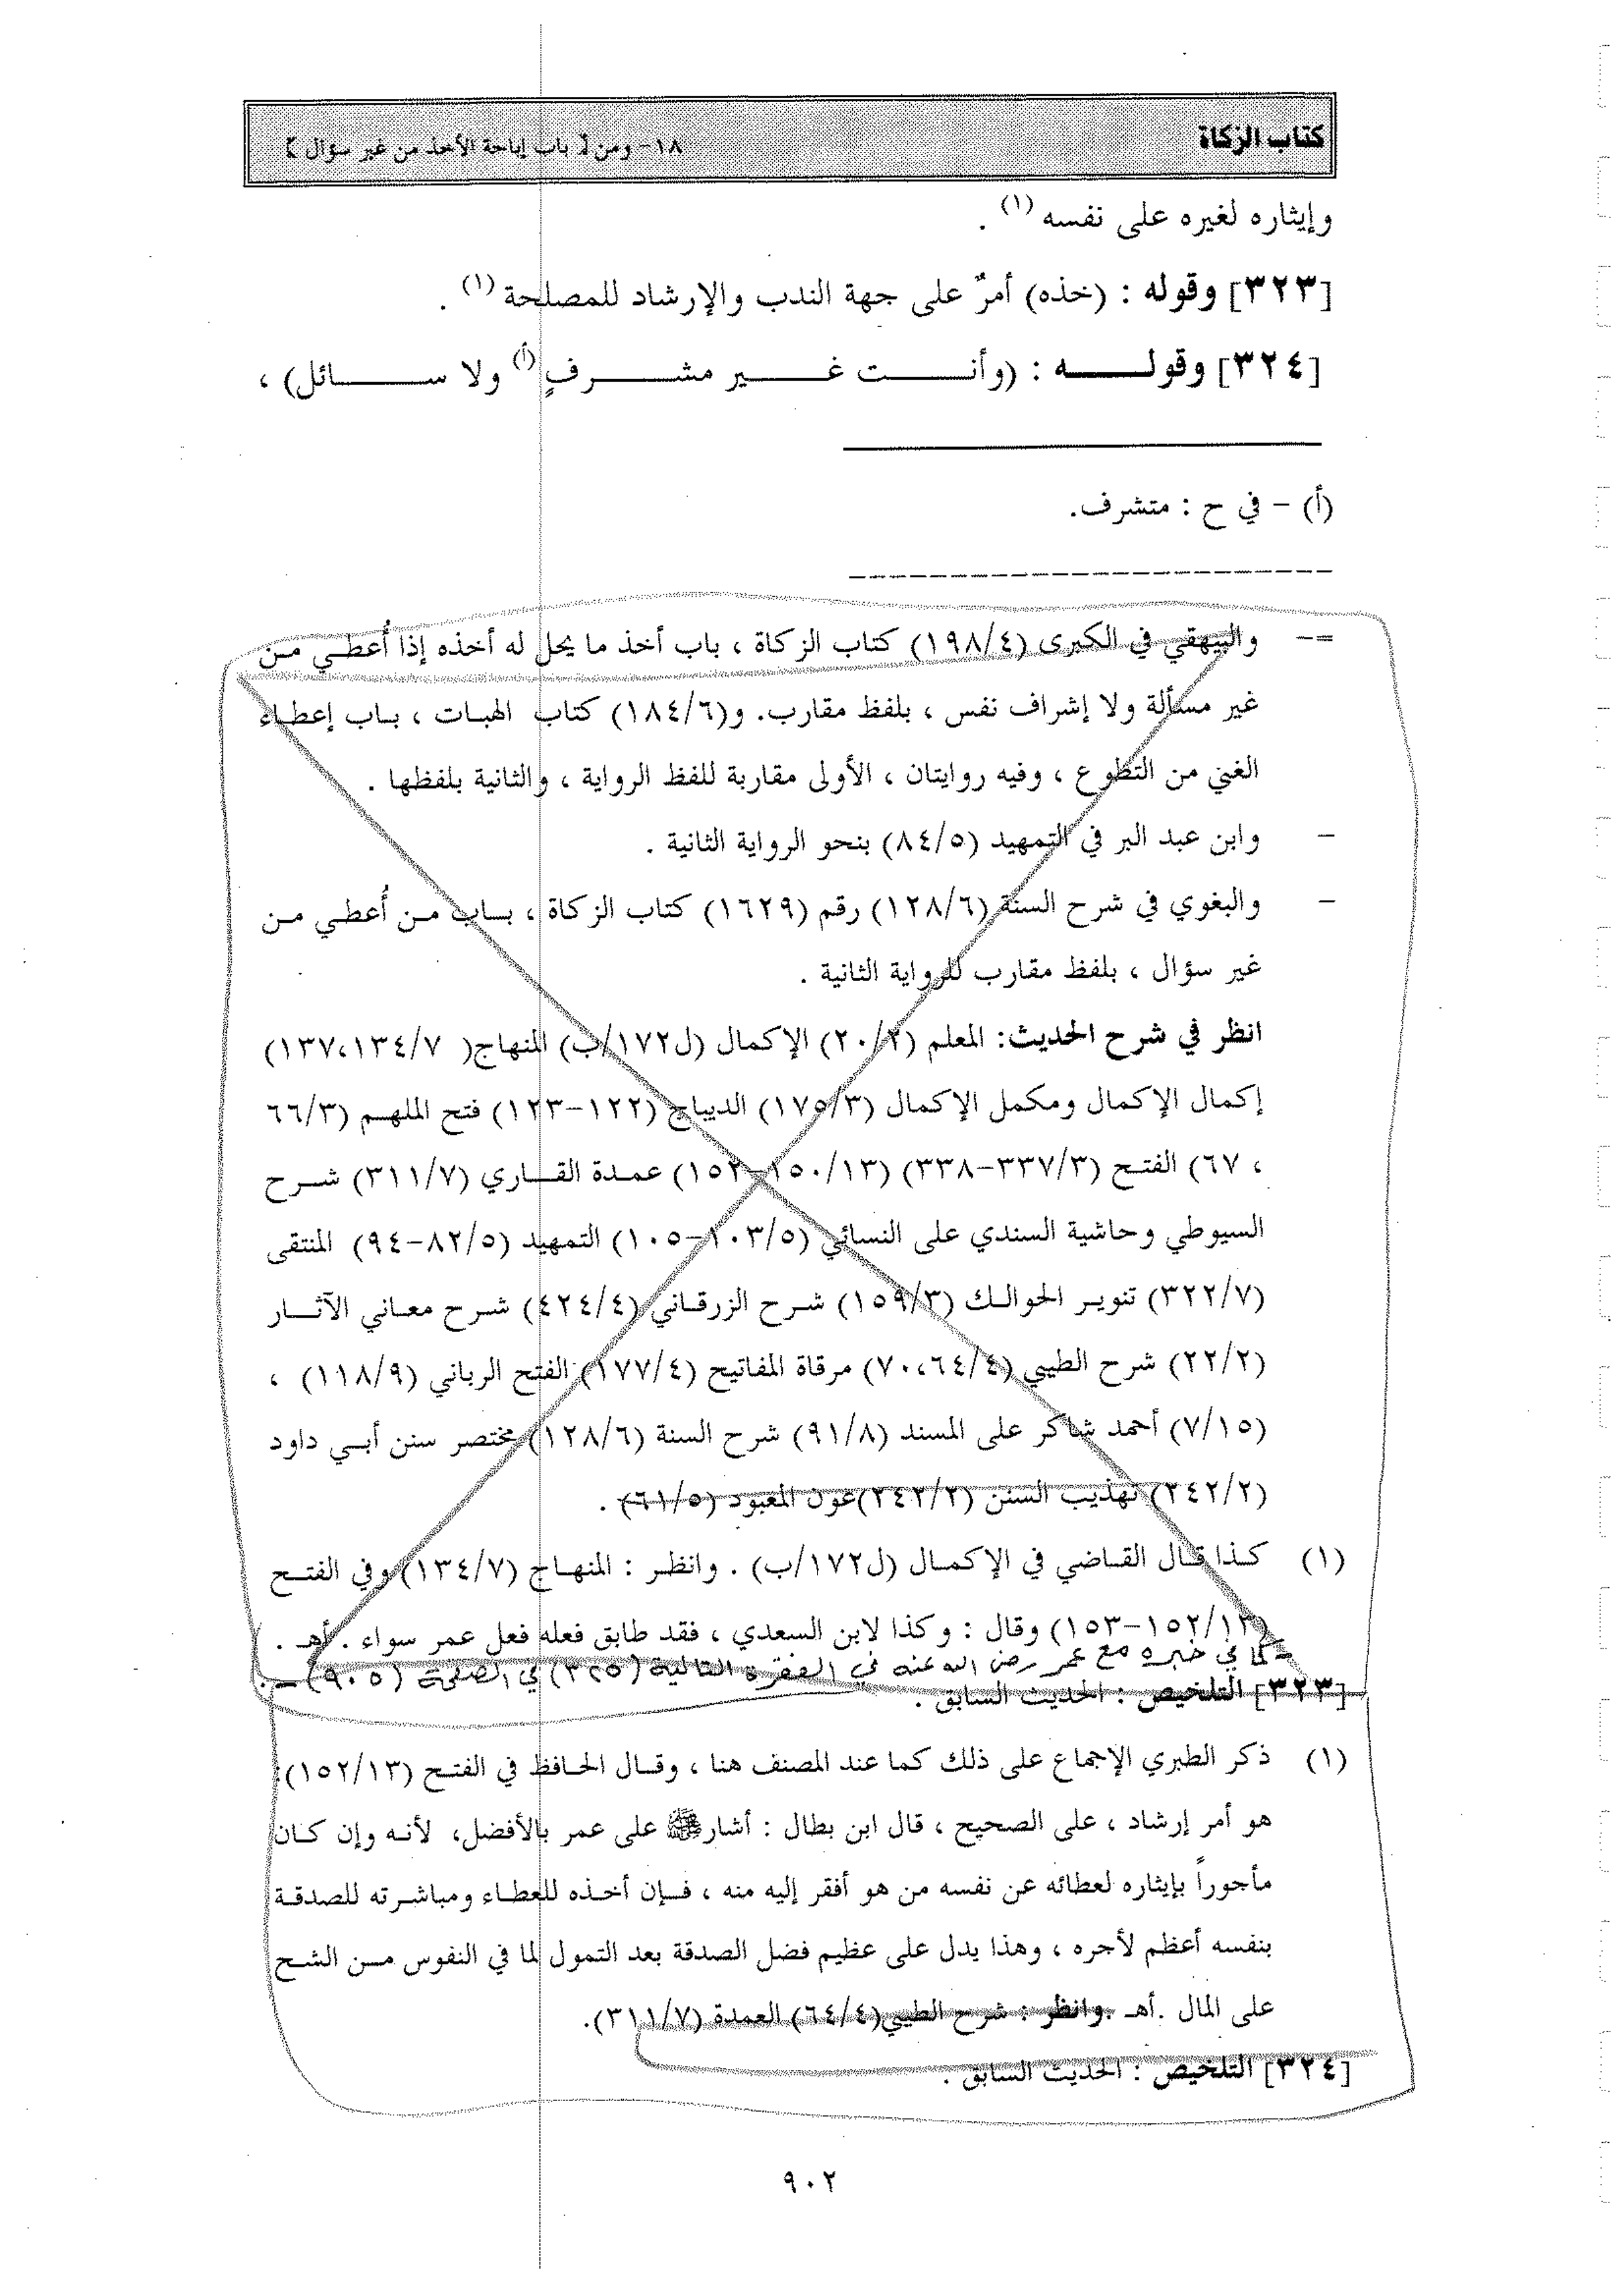 كتاب الزكاة
١٨- ومن [ باب إباحة الأخذ من غير سؤال ]
وإيثاره لغيره على نفسه (١) .
[٣٢٣] وقوله : (خذه) أمرٌ على جهة الندب والإرشاد للمصلحة (١) .
[٣٢٤] وقولـــه : (وأنـــت غـــير مشـــرفٍ (أ) ولا ســـائل) ،
(أ) - في ح : متشرف.
=- والبيهقي في الكبرى (١٩٨/٤) كتاب الزكاة ، باب أخذ ما يحل له أخذه إذا أُعطي من
غير مسألة ولا إشراف نفس ، بلفظ مقارب. و(١٨٤/٦) كتاب الهبات ، باب إعطاء
الغني من التطوع ، وفيه روايتان ، الأولى مقاربة للفظ الرواية ، والثانية بلفظها .
- وابن عبد البر في التمهيد (٨٤/٥) بنحو الرواية الثانية .
- والبغوي في شرح السنة (١٢٨/٦) رقم (١٦٢٩) كتاب الزكاة ، باب من أُعطي من
غير سؤال ، بلفظ مقارب للرواية الثانية .
انظر في شرح الحديث: المعلم (٢٠/٢) الإكمال (ل١٧٢/ب) المنهاج( ١٣٧،١٣٤/٧)
إكمال الإكمال ومكمل الإكمال (١٧٥/٣) الديباج (١٢٢-١٢٣) فتح الملهم (٦٦/٣
، ٦٧) الفتح (٣٣٧/٣-٣٣٨) (١٥٠/١٣-١٥٢) عمدة القاري (٣١١/٧) شرح
السيوطي وحاشية السندي على النسائي (١٠٣/٥-١٠٥) التمهيد (٨٢/٥-٩٤) المنتقى
(٣٢٢/٧) تنوير الحوالك (١٥٩/٣) شرح الزرقاني (٤٢٤/٤) شرح معاني الآثار
(٢٢/٢) شرح الطيبي (٧٠،٦٤/٤) مرقاة المفاتيح (١٧٧/٤) الفتح الرباني (١١٨/٩) ،
(٧/١٥) أحمد شاكر على المسند (٩١/٨) شرح السنة (١٢٨/٦) مختصر سنن أبي داود
(٢٤٢/٢) تهذيب السنن (٢٤٢/٢)عون المعبود (٦١/٥) .
(١) كذا قال القاضي في الإكمال (ل١٧٢/ب) . وانظر : المنهاج (١٣٤/٧) وفي الفتح
(١٥٢/١٣-١٥٣) وقال : وكذا لابن السعدي ، فقد طابق فعله فعل عمر سواء . أهـ .
كما في خبره مع عمر رضي الله عنه في الفقرة التالية (٣٢٥) في الصفحة (٩٠٥) .
[٣٢٣] التلخيص : الحديث السابق .
(١) ذكر الطبري الإجماع على ذلك كما عند المصنف هنا ، وقال الحافظ في الفتح (١٥٢/١٣):
هو أمر إرشاد ، على الصحيح ، قال ابن بطال : أشار ﷺ على عمر بالأفضل، لأنه وإن كان
مأجوراً بإيثاره لعطائه عن نفسه من هو أفقر إليه منه ، فإن أخذه للعطاء ومباشرته للصدقة
بنفسه أعظم لأجره ، وهذا يدل على عظيم فضل الصدقة بعد التمول لما في النفوس من الشح
على المال .أهـ .وانظر : شرح الطيبي(٦٤/٤) العمدة (٣١١/٧).
[٣٢٤] التلخيص : الحديث السابق .
٩٠٢